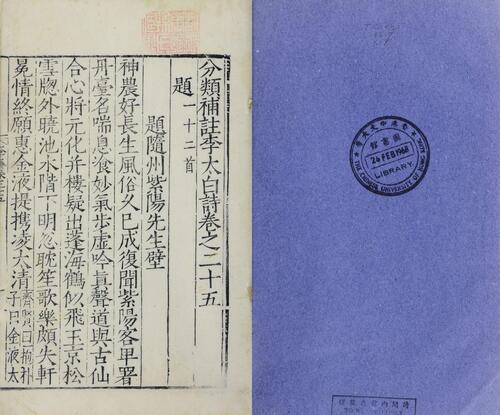 分類補註李太白詩卷之二十五
題一十二首
題隨州紫陽先生壁
神農好長生風俗久已成復聞紫陽客早署
丹臺名喘息飡妙氣步虛吟真聲道與古仙
合心將元化并樓疑出蓬海鶴似飛玉京松
雪牕外曉池水階下明忽耽笙歌樂頗失軒
冕情終願惠金液提攜凌太清齊賢曰抱朴
子曰金液太
香港中文大學
圖書館
26 FEB 1968
LIBRARY
THE CHINESE UNIVERSITY OF HONG KONG